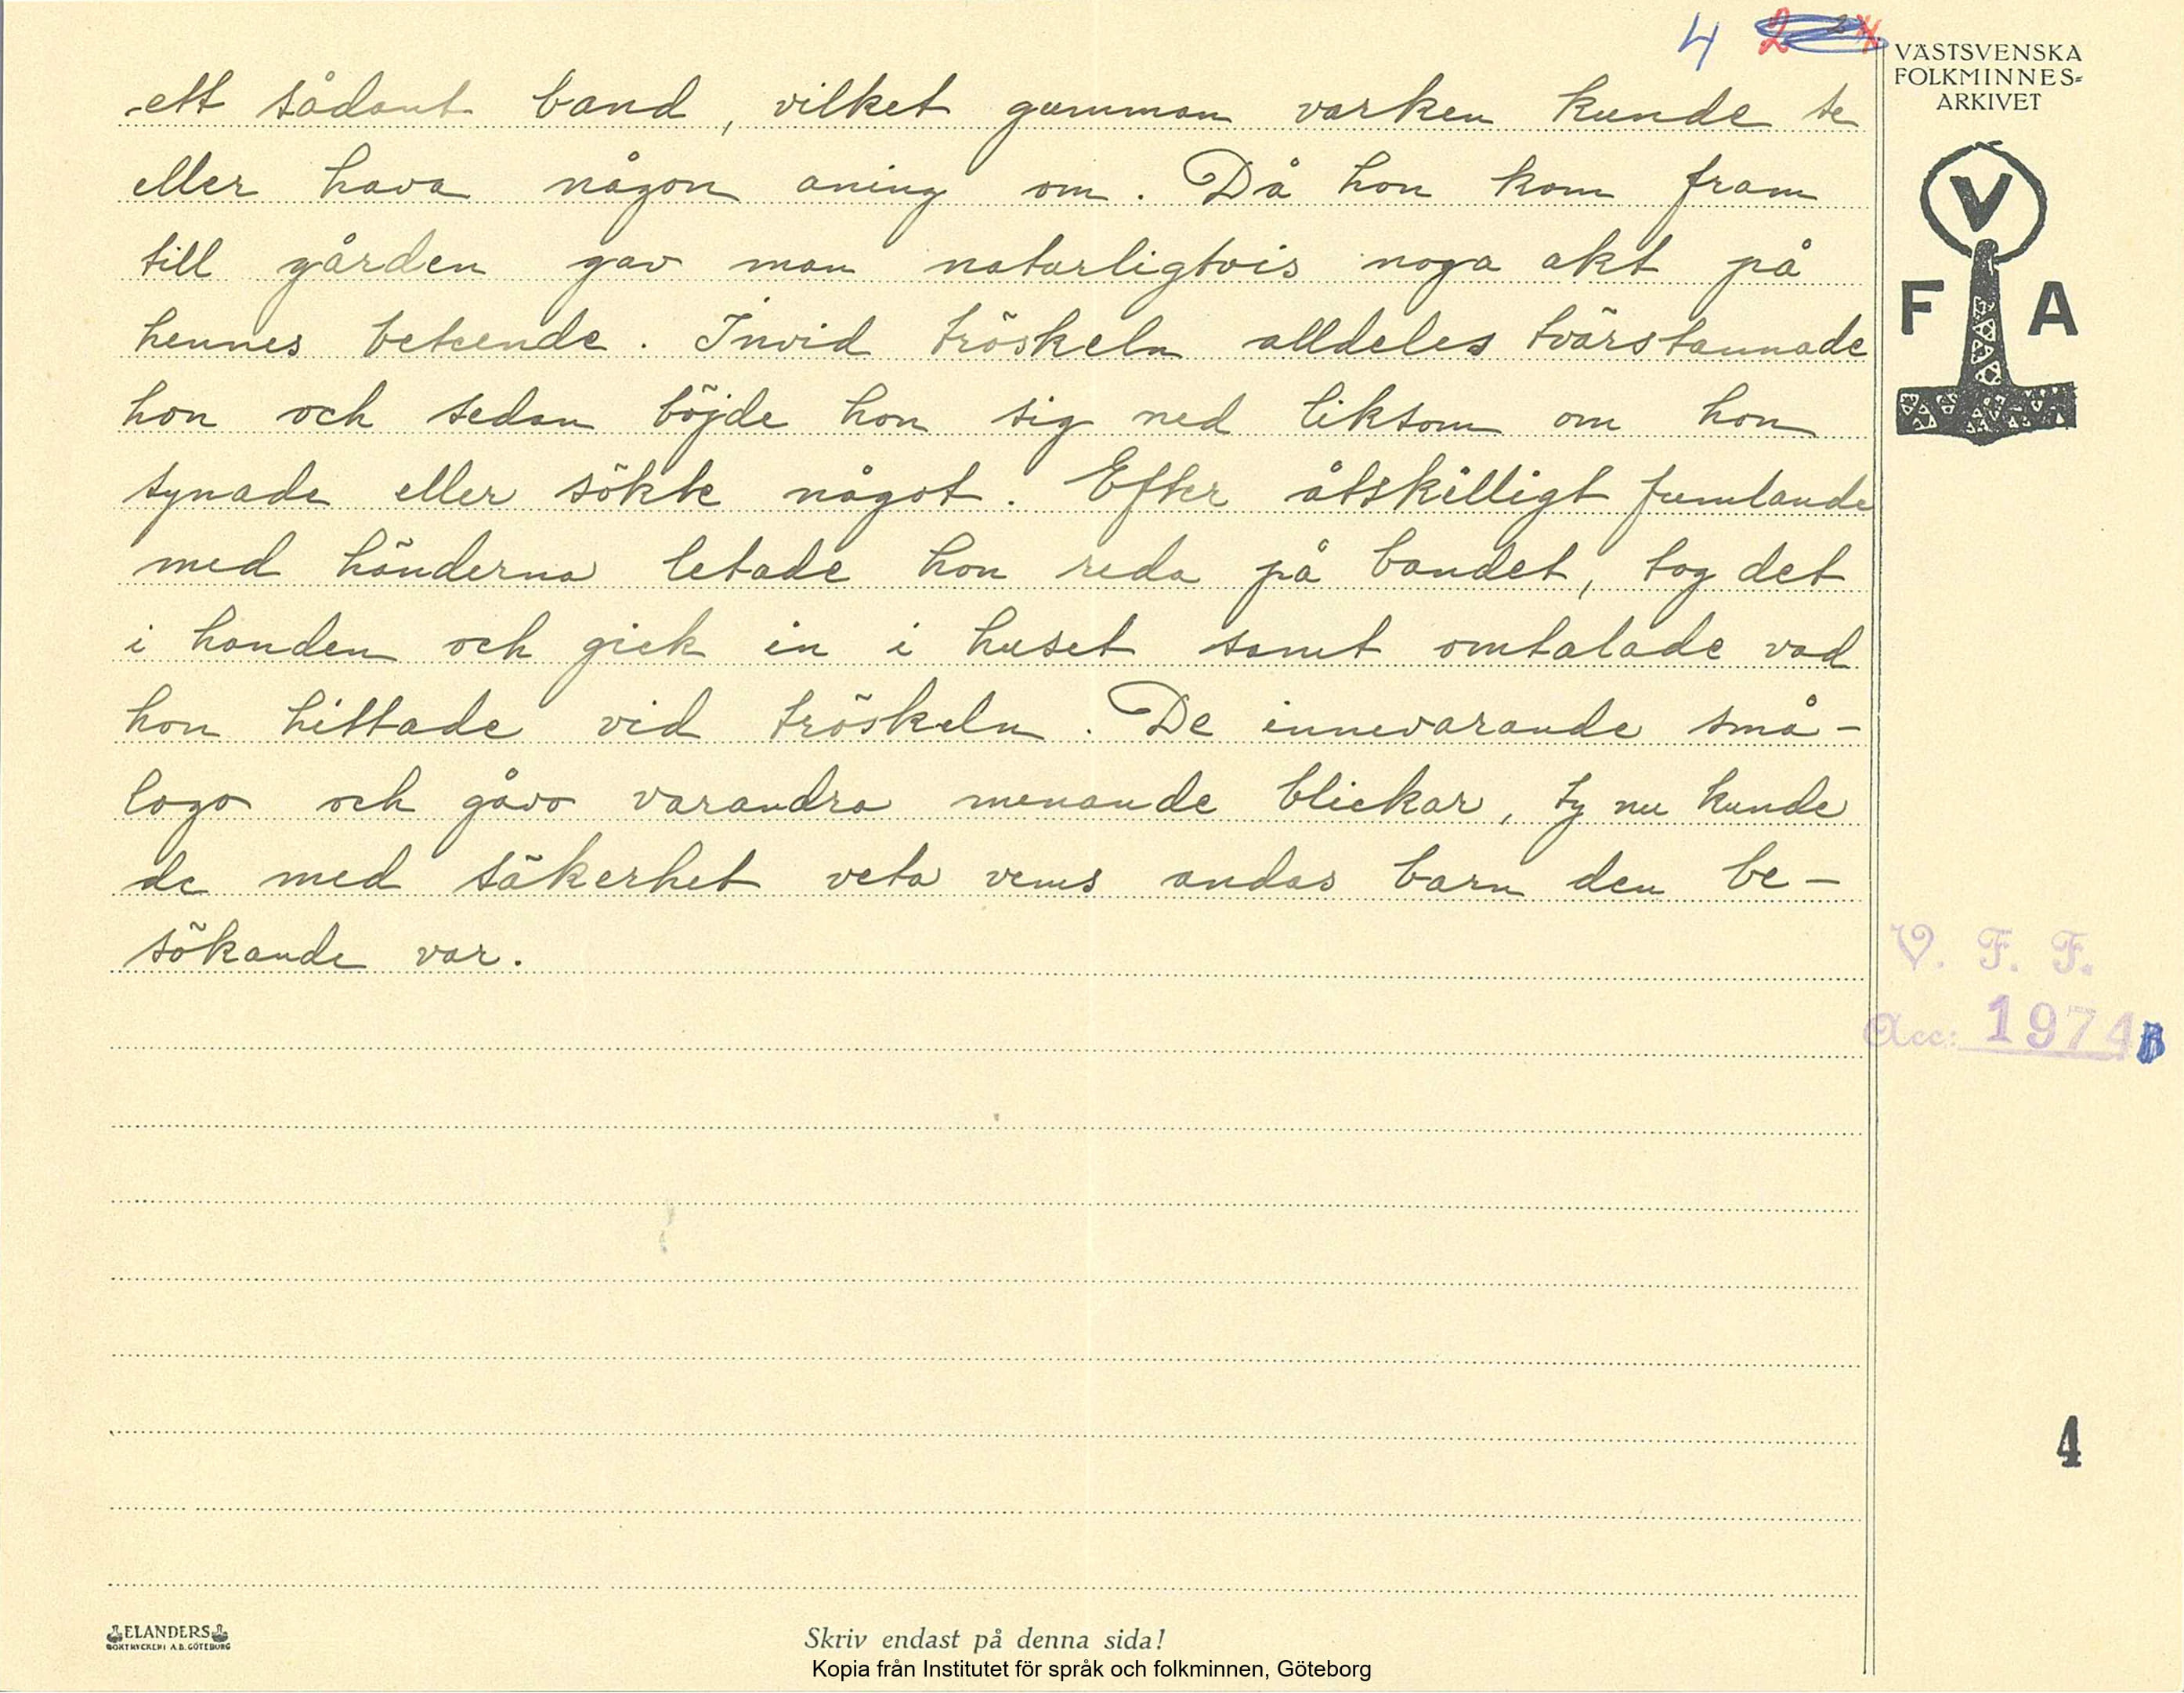 4
VÄSTSVENSKA
FOLKMINNES-
ARKIVET
V
F A
ett sådant band, vilket gumman varken kunde se
eller hava någon aning om. Då hon kom fram
till gården gav man naturligtvis noga akt på
hennes beteende. Invid tröskeln alldeles tvärstannade
hon och sedan böjde hon sig ned liksom om hon
synade eller sökte något. Efter åtskilligt fumlande
med händerna letade hon reda på bandet, tog det
i handen och gick in i huset samt omtalade vad
hon hittade vid tröskeln. De innevarande små-
logo och gåvo varandra menande blickar, ty nu kunde
de med säkerhet veta vems andas barn den be-
sökande var.
V. F. F.
Acc: 1974 B
4
ELANDERS
BOKTRYCKERI A.B. GÖTEBORG
Skriv endast på denna sida!
Kopia från Institutet för språk och folkminnen, Göteborg